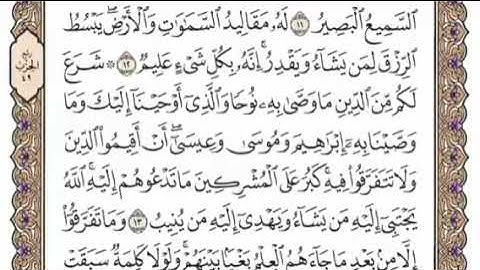 ٱلسَّمِيعُ ٱلْبَصِيرُ ١١ لَهُۥ مَقَالِيدُ ٱلسَّمَٰوَٰتِ وَٱلْأَرْضِۖ يَبْسُطُ
ٱلرِّزْقَ لِمَن يَشَآءُ وَيَقْدِرُۚ إِنَّهُۥ بِكُلِّ شَىْءٍ عَلِيمٌ ١٢ ۞ شَرَعَ
لَكُم مِّنَ ٱلدِّينِ مَا وَصَّىٰ بِهِۦ نُوحًا وَٱلَّذِىٓ أَوْحَيْنَآ إِلَيْكَ وَمَا
وَصَّيْنَا بِهِۦٓ إِبْرَٰهِيمَ وَمُوسَىٰ وَعِيسَىٰٓۖ أَنْ أَقِيمُوا۟ ٱلدِّينَ
وَلَا تَتَفَرَّقُوا۟ فِيهِۚ كَبُرَ عَلَى ٱلْمُشْرِكِينَ مَا تَدْعُوهُمْ إِلَيْهِۚ ٱللَّهُ
يَجْتَبِىٓ إِلَيْهِ مَن يَشَآءُ وَيَهْدِىٓ إِلَيْهِ مَن يُنِيبُ ١٣ وَمَا تَفَرَّقُوٓا۟
إِلَّا مِنۢ بَعْدِ مَا جَآءَهُمُ ٱلْعِلْمُ بَغْيًۢا بَيْنَهُمْۚ وَلَوْلَا كَلِمَةٌ سَبَقَتْ
الحزب
٤٩